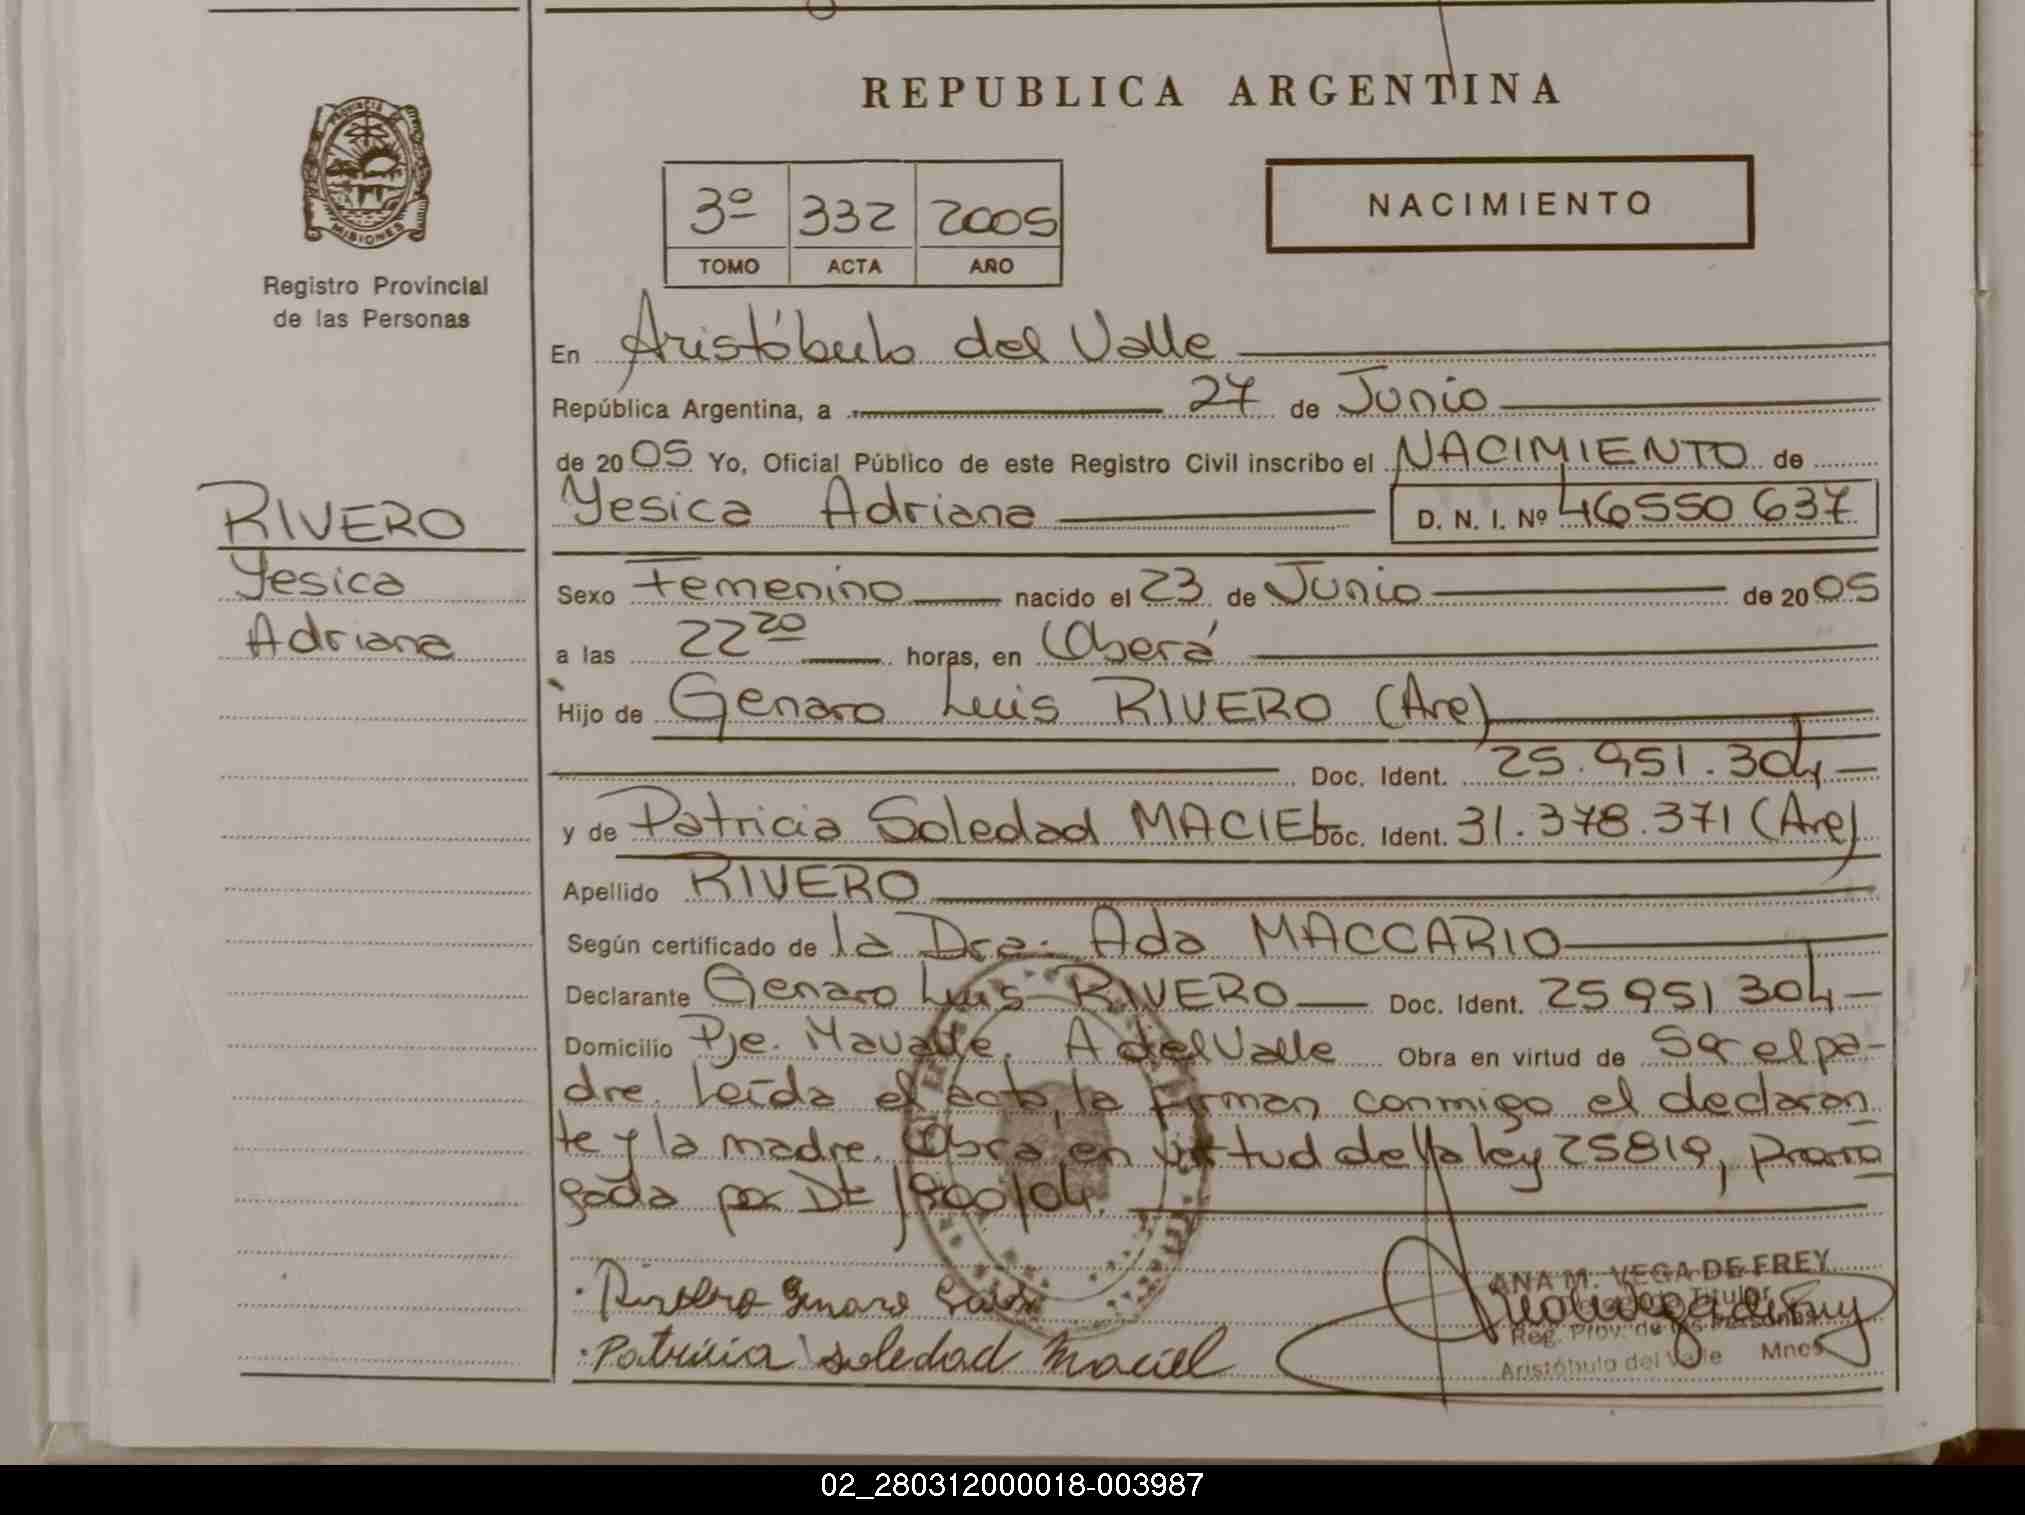 REPUBLICA ARGENTINA
PROVINCIA DE
MISIONES
Registro Provincial
de las Personas
3º 332 2005
TOMO ACTA AÑO
NACIMIENTO
En Aristóbulo del Valle
República Argentina, a 27 de Junio
de 2005 Yo, Oficial Público de este Registro Civil inscribo el NACIMIENTO de
Yesica Adriana D. N. I. Nº 46550 637
RIVERO
Yesica
Adriana
Sexo Femenino nacido el 23 de Junio de 2005
a las 22 20 horas, en Oberá
Hijo de Genaro Luis RIVERO (Arg)
Doc. Ident. 25.951.304
y de Patricia Soledad MACIEL Doc. Ident. 31.378.371 (Arg)
Apellido RIVERO
Según certificado de la Dra. Ada MACCARIO
Declarante Genaro Luis RIVERO Doc. Ident. 25951304
Domicilio Pje. Mavalle. A del Valle Obra en virtud de Ser el pa-
dre. Leída el acta, la firman conmigo el declaran
te y la madre. Obra en virtud de la ley 25819, prorro
gada por Dt 1900/04.
Rivero Genaro Luis
Patricia Soledad Maciel
ANA M. VEGA DE FREY
Titular
Reg. Prov. de las Personas
Aristóbulo del Valle Mnes
02_280312000018-003987